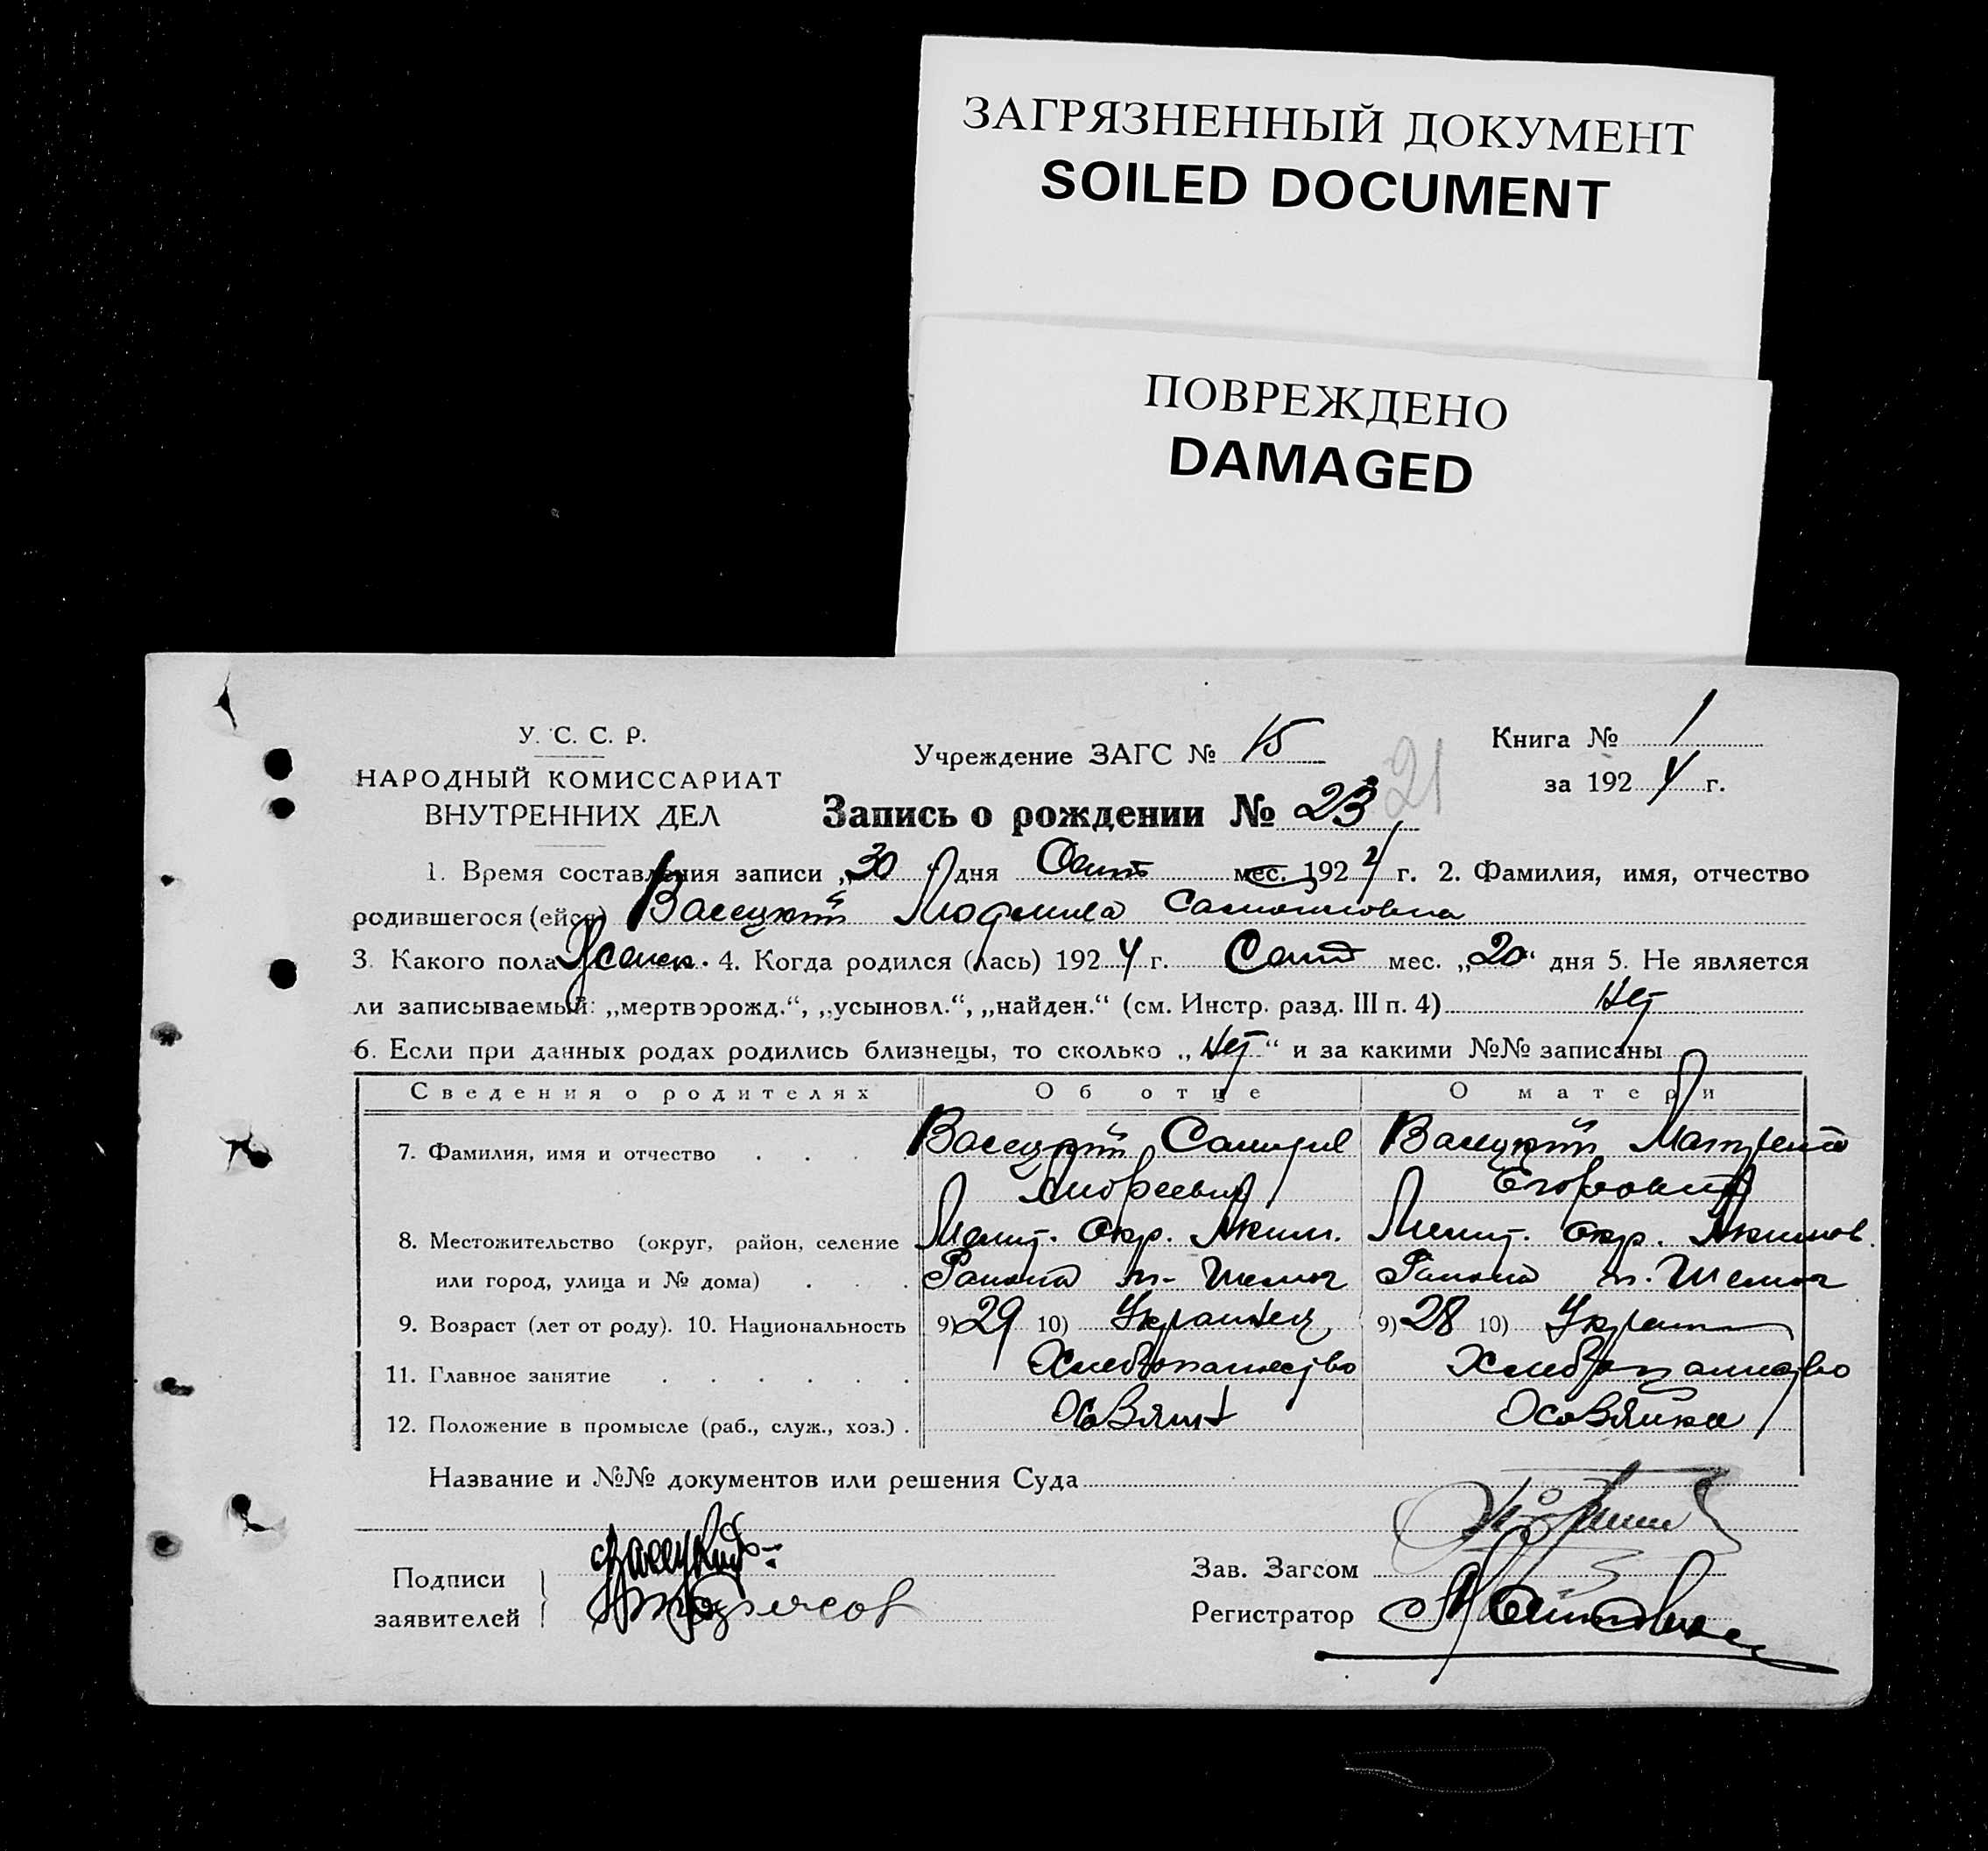 ЗАГРЯЗНЕННЫЙ ДОКУМЕНТ
SOILED DOCUMENT
ПОВРЕЖДЕНО
DAMAGED
У. С. С. Р.
НАРОДНЫЙ КОМИССАРИАТ
ВНУТРЕННИХ ДЕЛ
Учреждение ЗАГС № 15
Книга № 1
за 1924 г.
Запись о рождении № 23 21
1. Время составления записи „30“ дня мес. 1924 г. 2. Фамилия, имя, отчество
родившегося (ейся) Васецкий Людмила
3. Какого пола Женск. 4. Когда родился (лась) 1924 г. Сент мес. „20“ дня 5. Не является
ли записываемый: „мертворожд.“, „усыновл.“, „найден.“ (см. Инстр. разд. III п. 4) Нет
6. Если при данных родах родились близнецы, то сколько „Нет“ и за какими №№ записаны
Сведения о родителях Об отце О матери
7. Фамилия, имя и отчество . . . Васецкий Васецкий Матрена
Андреевич Егоровна
8. Местожительство (округ, район, селение Мелит. Окр. Аким. Мелит. Окр. Акимов.
или город, улица и № дома) . . . Района Района
9. Возраст (лет от роду). 10. Национальность 9) 29 10) Украинец 9) 28 10) Украин
11. Главное занятие . . . . . . Хлебопашество Хлебопашество
12. Положение в промысле (раб., служ., хоз.) .
Название и №№ документов или решения Суда
Подписи
заявителей
Васецкий
Зав. Загсом
Регистратор